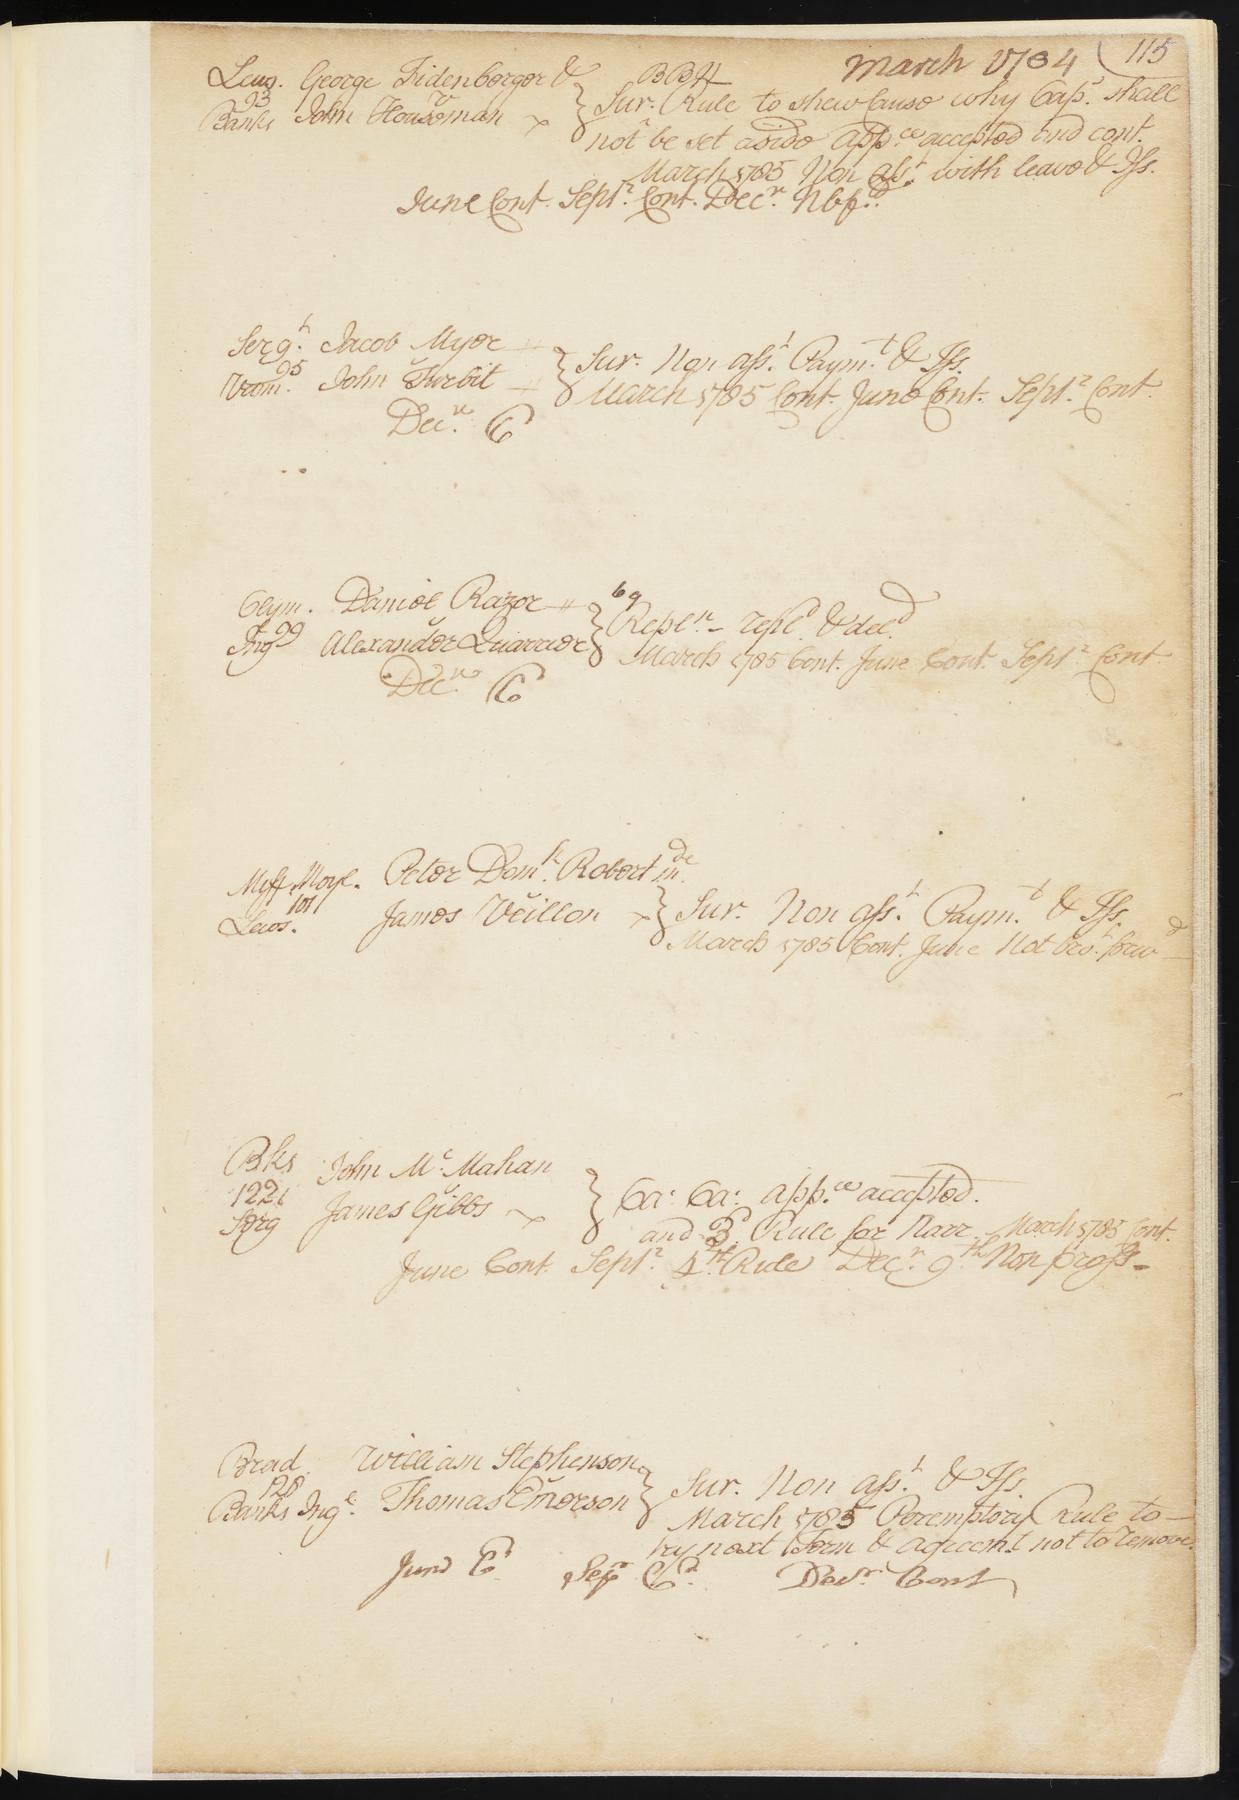 March 1784 115
Lews. George Fidenberger &
93
Banks John Houseman
v
BBH
Sur. Rule to shew Cause why Caps. shall
not be set aside app.ce accepted and cont.
March 1785 Non ass.t with leave & Iss.
June Cont. Sept.r Cont. Dec.r Nbf.d
Serg.t Jacob Myer
95 v
Vrom. John Turbit
Sur. Non ass.t Paym.t & Iss.
March 1785 Cont. June Cont. Sept.r Cont.
Dec.r C
Clym. Daniel Razor
99 v
Ing Alexander Quarrier
69
Repl.n - repl.d & decl.d
March 1785 Cont. June Cont. Sept.r Cont
Dec.r C
Miff. Moyl. Peter Dom.k Robert
101 v
Lews. James Veillon
Sur. Non ass.t Paym.t & Iss.
March 1785 Cont. June Not bro.t forw.d
Bks John Mc.Mahan
122 v
Serg James Gibbs
Ca: Sa: app.ce accepted.
and 3.d Rule for Narr. March 1785 Cont.
June Cont. Sept.r 4.th Rule Dec.r 9.th Non pross-
Brad William Stephenson
128 v
Banks Ing. Thomas Emerson
Sur. Non ass.t & Iss.
March 1785 Peremptory Rule to
try next Term & agreem.t not to remove.
June C.d Sep.r C.d Dec.r Cont